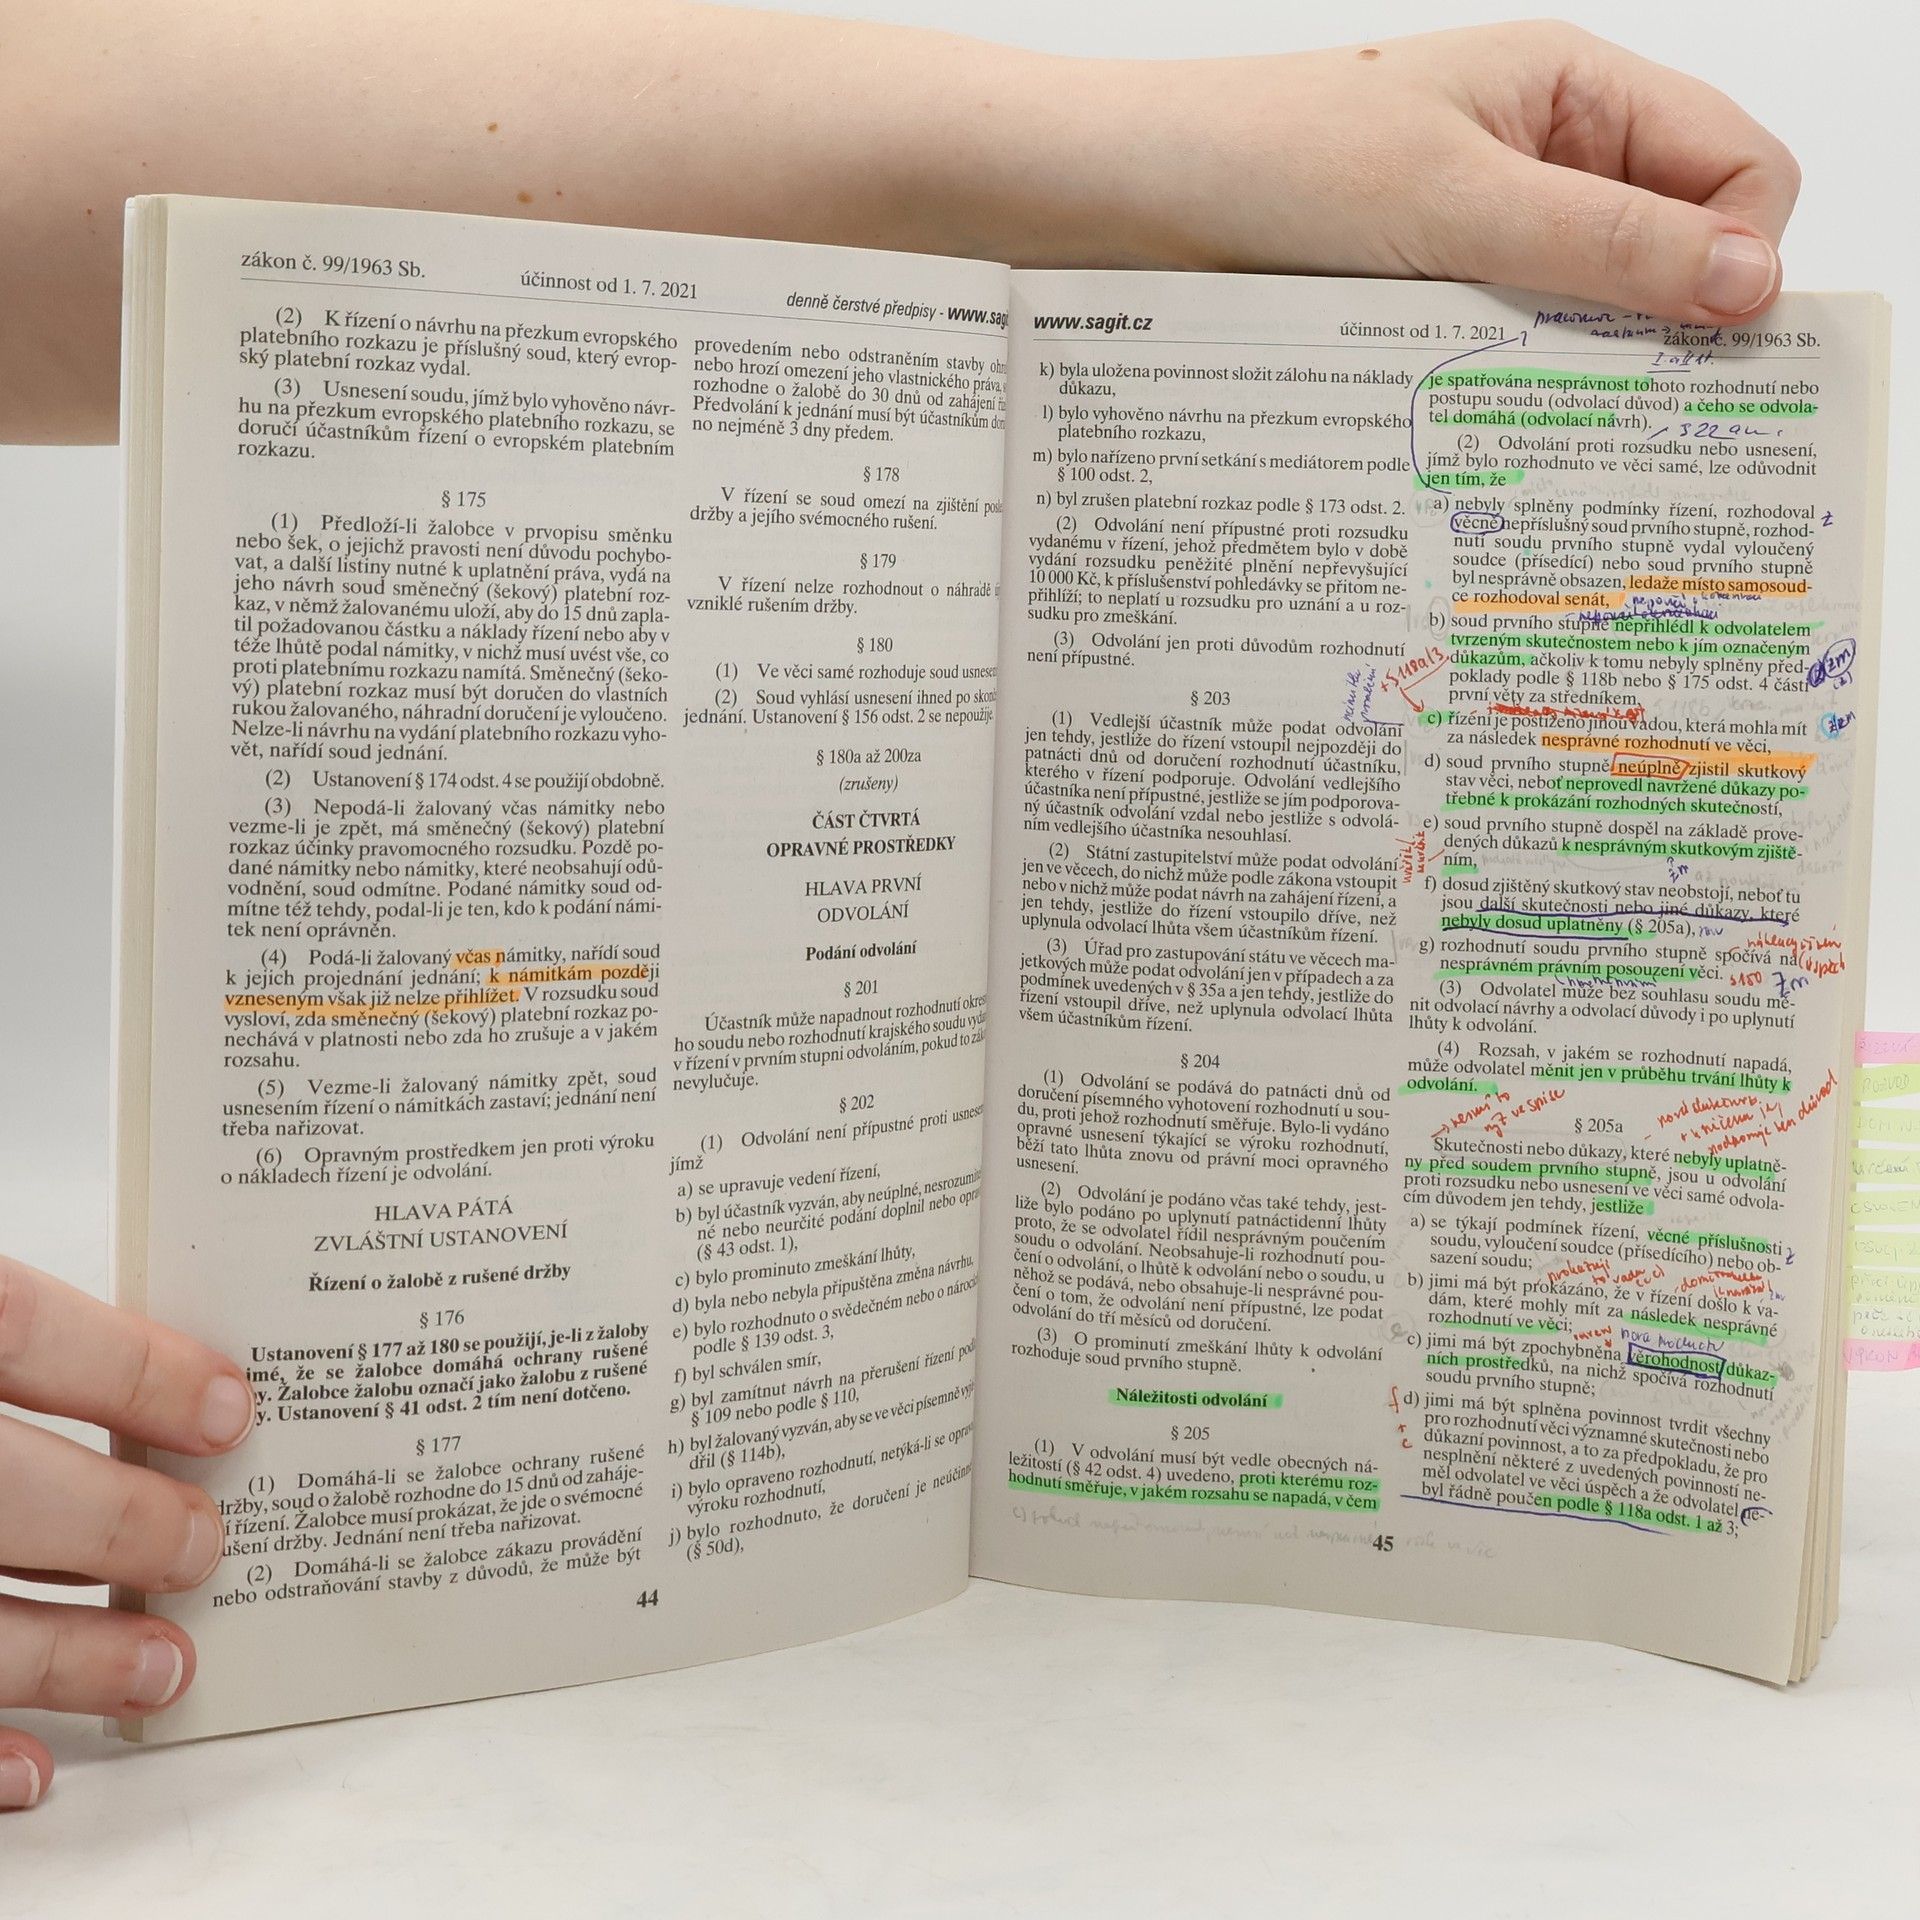 zákon č. 99/1963 Sb.
účinnost od 1. 7. 2021
denně čerstvé předpisy - www.sagi
(2) K řízení o návrhu na přezkum evropského
platebního rozkazu je příslušný soud, který evrop-
ský platební rozkaz vydal.
(3) Usnesení soudu, jímž bylo vyhověno návr-
hu na přezkum evropského platebního rozkazu, se
doručí účastníkům řízení o evropském platebním
rozkazu.
§ 175
(1) Předloží-li žalobce v prvopisu směnku
nebo šek, o jejichž pravosti není důvodu pochybo-
vat, a další listiny nutné k uplatnění práva, vydá na
jeho návrh soud směnečný (šekový) platební roz-
kaz, v němž žalovanému uloží, aby do 15 dnů zapla-
til požadovanou částku a náklady řízení nebo aby v
téže lhůtě podal námitky, v nichž musí uvést vše, co
proti platebnímu rozkazu namítá. Směnečný (šeko-
vý) platební rozkaz musí být doručen do vlastních
rukou žalovaného, náhradní doručení je vyloučeno.
Nelze-li návrhu na vydání platebního rozkazu vyho-
vět, nařídí soud jednání.
(2) Ustanovení § 174 odst. 4 se použijí obdobně.
(3) Nepodá-li žalovaný včas námitky nebo
vezme-li je zpět, má směnečný (šekový) platební
rozkaz účinky pravomocného rozsudku. Pozdě po-
dané námitky nebo námitky, které neobsahují odů-
vodnění, soud odmítne. Podané námitky soud od-
mítne též tehdy, podal-li je ten, kdo k podání námi-
tek není oprávněn.
(4) Podá-li žalovaný včas námitky, nařídí soud
k jejich projednání jednání; k námitkám později
vzneseným však již nelze přihlížet. V rozsudku soud
vysloví, zda směnečný (šekový) platební rozkaz po-
nechává v platnosti nebo zda ho zrušuje a v jakém
rozsahu.
(5) Vezme-li žalovaný námitky zpět, soud
usnesením řízení o námitkách zastaví; jednání není
třeba nařizovat.
(6) Opravným prostředkem jen proti výroku
o nákladech řízení je odvolání.
HLAVA PÁTÁ
ZVLÁŠTNÍ USTANOVENÍ
Řízení o žalobě z rušené držby
§ 176
Ustanovení § 177 až 180 se použijí, je-li z žaloby
imé, že se žalobce domáhá ochrany rušené
y. Žalobce žalobu označí jako žalobu z rušené
y. Ustanovení § 41 odst. 2 tím není dotčeno.
§ 177
(1) Domáhá-li se žalobce ochrany rušené
držby, soud o žalobě rozhodne do 15 dnů od zaháje-
í řízení. Žalobce musí prokázat, že jde o svémocné
ušení držby. Jednání není třeba nařizovat.
(2) Domáhá-li se žalobce zákazu provádění
nebo odstraňování stavby z důvodů, že může být
provedením nebo odstraněním stavby ohr
nebo hrozí omezení jeho vlastnického práva, s
rozhodne o žalobě do 30 dnů od zahájení ří
Předvolání k jednání musí být účastníkům dor
no nejméně 3 dny předem.
§ 178
V řízení se soud omezí na zjištění posle
držby a jejího svémocného rušení.
§ 179
V řízení nelze rozhodnout o náhradě ú
vzniklé rušením držby.
§ 180
(1) Ve věci samé rozhoduje soud usnesen
(2) Soud vyhlásí usnesení ihned po skonč
jednání. Ustanovení § 156 odst. 2 se nepoužije.
§ 180a až 200za
(zrušeny)
ČÁST ČTVRTÁ
OPRAVNÉ PROSTŘEDKY
HLAVA PRVNÍ
ODVOLÁNÍ
Podání odvolání
§ 201
Účastník může napadnout rozhodnutí okres
ho soudu nebo rozhodnutí krajského soudu vyda
v řízení v prvním stupni odvoláním, pokud to zák
nevylučuje.
§ 202
(1) Odvolání není přípustné proti usnese
jímž
a) se upravuje vedení řízení,
b) byl účastník vyzván, aby neúplné, nesrozumite
né nebo neurčité podání doplnil nebo opra
(§ 43 odst. 1),
c) bylo prominuto zmeškání lhůty,
d) byla nebo nebyla připuštěna změna návrhu,
e) bylo rozhodnuto o svědečném nebo o nárocíc
podle § 139 odst. 3,
f) byl schválen smír,
g) byl zamítnut návrh na přerušení řízení pod
§ 109 nebo podle § 110,
h) byl žalovaný vyzván, aby se ve věci písemně vyj
dřil (§ 114b),
i) bylo opraveno rozhodnutí, netýká-li se oprav
výroku rozhodnutí,
j) bylo rozhodnuto, že doručení je neúčinn
(§ 50d),
44
www.sagit.cz
účinnost od 1. 7. 2021
zákon č. 99/1963 Sb.
k) byla uložena povinnost složit zálohu na náklady
důkazu,
l) bylo vyhověno návrhu na přezkum evropského
platebního rozkazu,
m) bylo nařízeno první setkání s mediátorem podle
§ 100 odst. 2,
n) byl zrušen platební rozkaz podle § 173 odst. 2.
(2) Odvolání není přípustné proti rozsudku
vydanému v řízení, jehož předmětem bylo v době
vydání rozsudku peněžité plnění nepřevyšující
10 000 Kč, k příslušenství pohledávky se přitom ne-
přihlíží; to neplatí u rozsudku pro uznání a u roz-
sudku pro zmeškání.
(3) Odvolání jen proti důvodům rozhodnutí
není přípustné.
§ 203
(1) Vedlejší účastník může podat odvolání
jen tehdy, jestliže do řízení vstoupil nejpozději do
patnácti dnů od doručení rozhodnutí účastníku,
kterého v řízení podporuje. Odvolání vedlejšího
účastníka není přípustné, jestliže se jím podporova-
ný účastník odvolání vzdal nebo jestliže s odvolá-
ním vedlejšího účastníka nesouhlasí.
(2) Státní zastupitelství může podat odvolání
jen ve věcech, do nichž může podle zákona vstoupit
nebo v nichž může podat návrh na zahájení řízení, a
jen tehdy, jestliže do řízení vstoupilo dříve, než
uplynula odvolací lhůta všem účastníkům řízení.
(3) Úřad pro zastupování státu ve věcech ma-
jetkových může podat odvolání jen v případech a za
podmínek uvedených v § 35a a jen tehdy, jestliže do
řízení vstoupil dříve, než uplynula odvolací lhůta
všem účastníkům řízení.
§ 204
(1) Odvolání se podává do patnácti dnů od
doručení písemného vyhotovení rozhodnutí u sou-
du, proti jehož rozhodnutí směřuje. Bylo-li vydáno
opravné usnesení týkající se výroku rozhodnutí,
běží tato lhůta znovu od právní moci opravného
usnesení.
(2) Odvolání je podáno včas také tehdy, jest-
liže bylo podáno po uplynutí patnáctidenní lhůty
proto, že se odvolatel řídil nesprávným poučením
soudu o odvolání. Neobsahuje-li rozhodnutí pou-
čení o odvolání, o lhůtě k odvolání nebo o soudu, u
něhož se podává, nebo obsahuje-li nesprávné pou-
čení o tom, že odvolání není přípustné, lze podat
odvolání do tří měsíců od doručení.
(3) O prominutí zmeškání lhůty k odvolání
rozhoduje soud prvního stupně.
Náležitosti odvolání
§ 205
(1) V odvolání musí být vedle obecných ná-
ležitostí (§ 42 odst. 4) uvedeno, proti kterému roz-
hodnutí směřuje, v jakém rozsahu se napadá, v čem
je spatřována nesprávnost tohoto rozhodnutí nebo
postupu soudu (odvolací důvod) a čeho se odvola-
tel domáhá (odvolací návrh).
(2) Odvolání proti rozsudku nebo usnesení,
jímž bylo rozhodnuto ve věci samé, lze odůvodnit
jen tím, že
a) nebyly splněny podmínky řízení, rozhodoval
věcně nepříslušný soud prvního stupně, rozhod-
nutí soudu prvního stupně vydal vyloučený
soudce (přísedící) nebo soud prvního stupně
byl nesprávně obsazen, ledaže místo samosoud-
ce rozhodoval senát,
b) soud prvního stupně nepřihlédl k odvolatelem
tvrzeným skutečnostem nebo k jím označeným
důkazům, ačkoliv k tomu nebyly splněny před-
poklady podle § 118b nebo § 175 odst. 4 části
první věty za středníkem,
+ § 118a/3
c) řízení je postiženo jinou vadou, která mohla mít
za následek nesprávné rozhodnutí ve věci,
d) soud prvního stupně neúplně zjistil skutkový
stav věci, neboť neprovedl navržené důkazy po-
třebné k prokázání rozhodných skutečností,
e) soud prvního stupně dospěl na základě prove-
dených důkazů k nesprávným skutkovým zjiště-
ním,
f) dosud zjištěný skutkový stav neobstojí, neboť tu
jsou další skutečnosti nebo jiné důkazy, které
nebyly dosud uplatněny (§ 205a),
g) rozhodnutí soudu prvního stupně spočívá na
nesprávném právním posouzení věci.
(3) Odvolatel může bez souhlasu soudu mě-
nit odvolací návrhy a odvolací důvody i po uplynutí
lhůty k odvolání.
(4) Rozsah, v jakém se rozhodnutí napadá,
může odvolatel měnit jen v průběhu trvání lhůty k
odvolání.
§ 205a
Skutečnosti nebo důkazy, které nebyly uplatně-
ny před soudem prvního stupně, jsou u odvolání
proti rozsudku nebo usnesení ve věci samé odvola-
cím důvodem jen tehdy, jestliže
a) se týkají podmínek řízení, věcné příslušnosti
soudu, vyloučení soudce (přísedícího) nebo ob-
sazení soudu;
b) jimi má být prokázáno, že v řízení došlo k va-
dám, které mohly mít za následek nesprávné
rozhodnutí ve věci;
c) jimi má být zpochybněna věrohodnost důkaz-
ních prostředků, na nichž spočívá rozhodnutí
soudu prvního stupně;
d) jimi má být splněna povinnost tvrdit všechny
pro rozhodnutí věci významné skutečnosti nebo
důkazní povinnost, a to za předpokladu, že pro
nesplnění některé z uvedených povinností ne-
měl odvolatel ve věci úspěch a že odvolatel ne-
byl řádně poučen podle § 118a odst. 1 až 3;
45